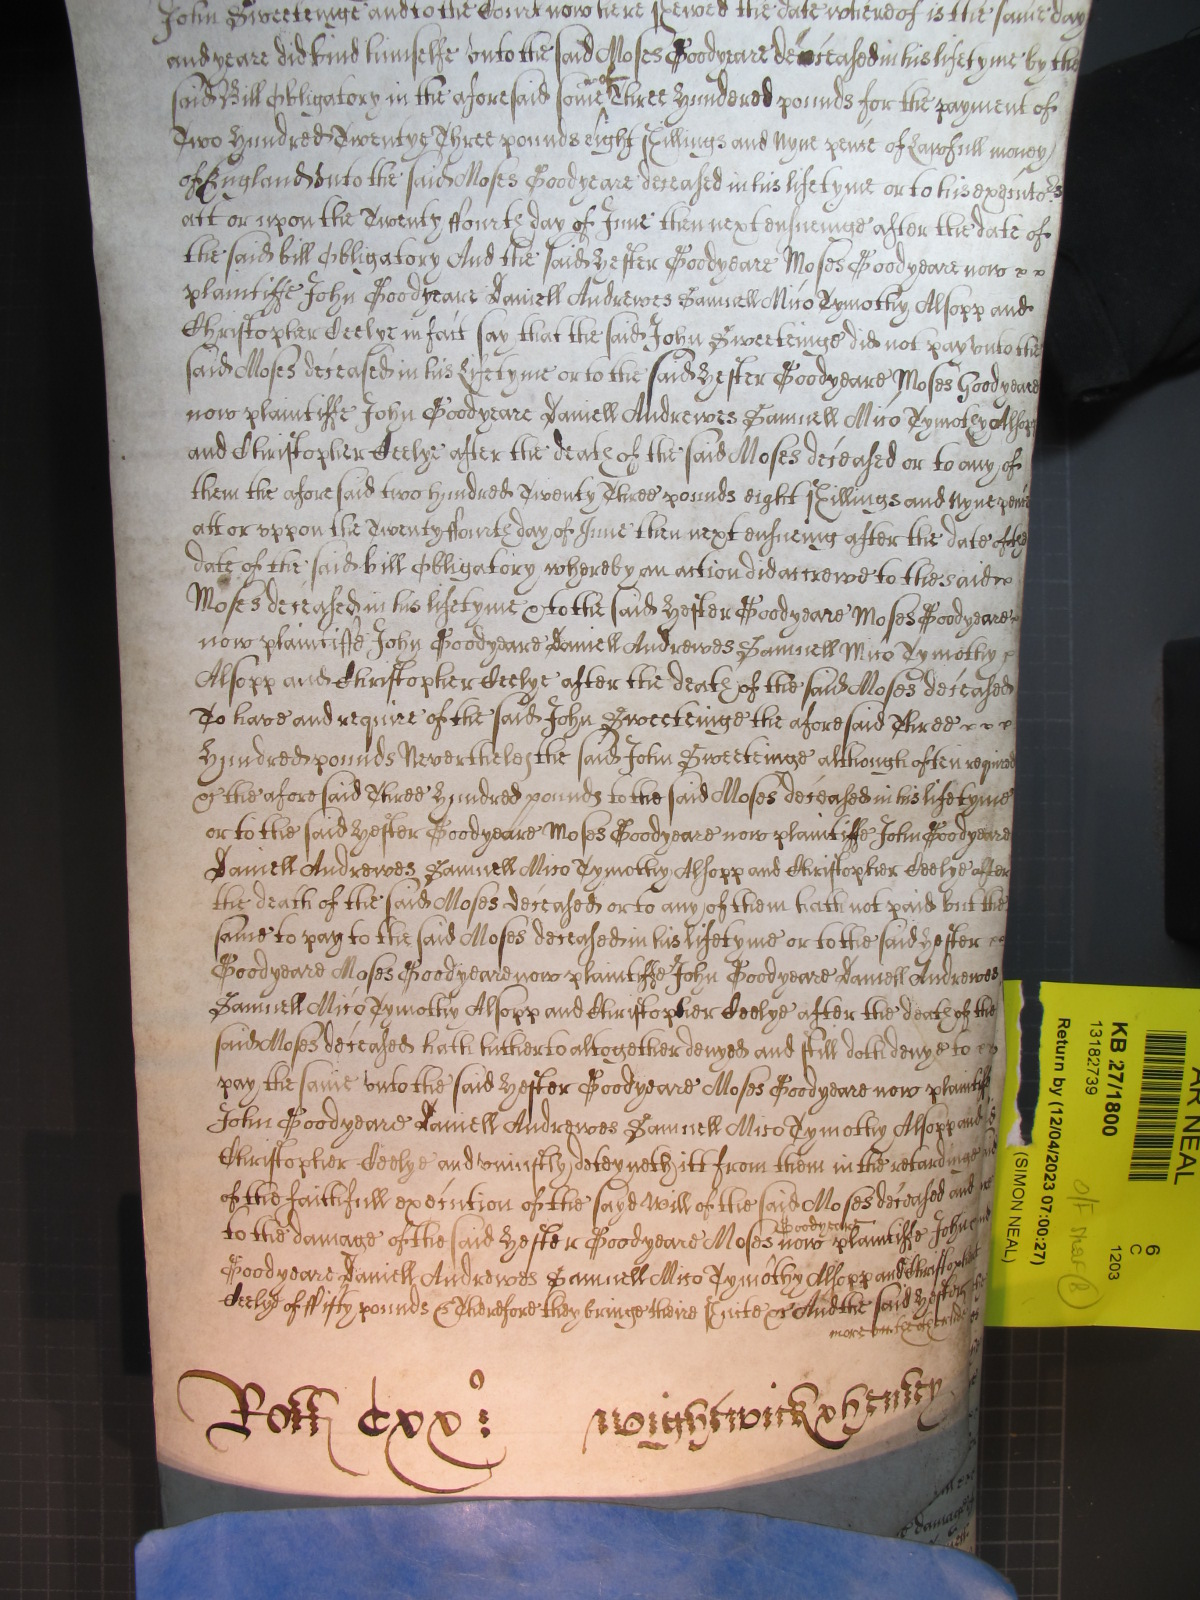 John Sweetinge and to the Court now here shewed the date whereof is the same day
and yeare did bind himselfe unto the said Moses Goodyeare deceased in his lifetyme by the
said Bill Obligatory in the aforesaid some of Three Hundered pounds for the payment of
Two Hundred Twentye Three pounds eight shillings and Nyne pence of Lawfull money
of England unto the said Moses Goodyeare deceased in his lifetyme or to his
att or upon the Twenty ffourth day of June then next ensueinge after the date of
the said bill Obligatory And the said Hester Goodyeare Moses Goodyeare now
plaintiffe John Goodyeare Daniell Andrewes Samuell Mico Tymothy Alsopp and
Christopher Ceelye in fact say that the said John Sweetinge did not pay unto the
said Moses deceased in his lifetyme or to the said Hester Goodyeare Moses Goodyeare
now plaintiffe John Goodyeare Daniell Andrewes Samuell Mico Tymothy Alsopp
and Christopher Ceelye after the death of the said Moses deceased or to any of
them the aforesaid two hundred Twenty Three pounds eight shillings and Nyne pence
att or uppon the Twenty ffourth day of June then next ensueing after the date of the
date of the said bill Obligatory whereby an action did accrewe to the said
Moses deceased in his lifetyme & to the said Hester Goodyeare Moses Goodyeare
now plaintiffe John Goodyeare Daniell Andrewes Samuell Mico Tymothy
Alsopp and Christopher Ceelye after the death of the said Moses deceased
To have and require of the said John Sweetinge the aforesaid Three
Hundred pounds Neverthelesse the said John Sweetinge although often required
&c the aforesaid Three Hundred pounds to the said Moses deceased in his lifetyme
or to the said Hester Goodyeare Moses Goodyeare now plaintiffe John Goodyeare
Daniell Andrewes Samuell Mico Tymothy Alsopp and Christopher Ceelye after
the death of the said Moses deceased or to any of them hath not paid but the
same to pay to the said Moses deceased in his lifetyme or to the said Hester
Goodyeare Moses Goodyeare now plaintiffe John Goodyeare Daniell Andrewes
Samuell Mico Tymothy Alsopp and Christopher Ceelye after the death of the
said Moses deceased hath hitherto altogether denyed and still doth denye to
pay the same unto the said Hester Goodyeare Moses Goodyeare now plaintiffe
John Goodyeare Daniell Andrewes Samuell Mico Tymothy Alsopp and
Christopher Ceelye and uniustly deteyneth itt from them in the retardinge
of the faithfull execution of the sayd will of the said Moses deceased and
to the damage of the said Hester Goodyeare Moses Goodyeare now plaintiffe John
Goodyeare Daniell Andrewes Samuell Mico Tymothy Alsopp and Christopher
Ceelye of ffifty pounds & Therefore they bringe theire suite &c And the said Hester
more on the other side
Roll Cxxo: Wightwick x henley
AR NEAL
KB 27/1800
13182739
Return by (12/04/2023 07:00:27)
(SIMON NEAL)
6
C
1203